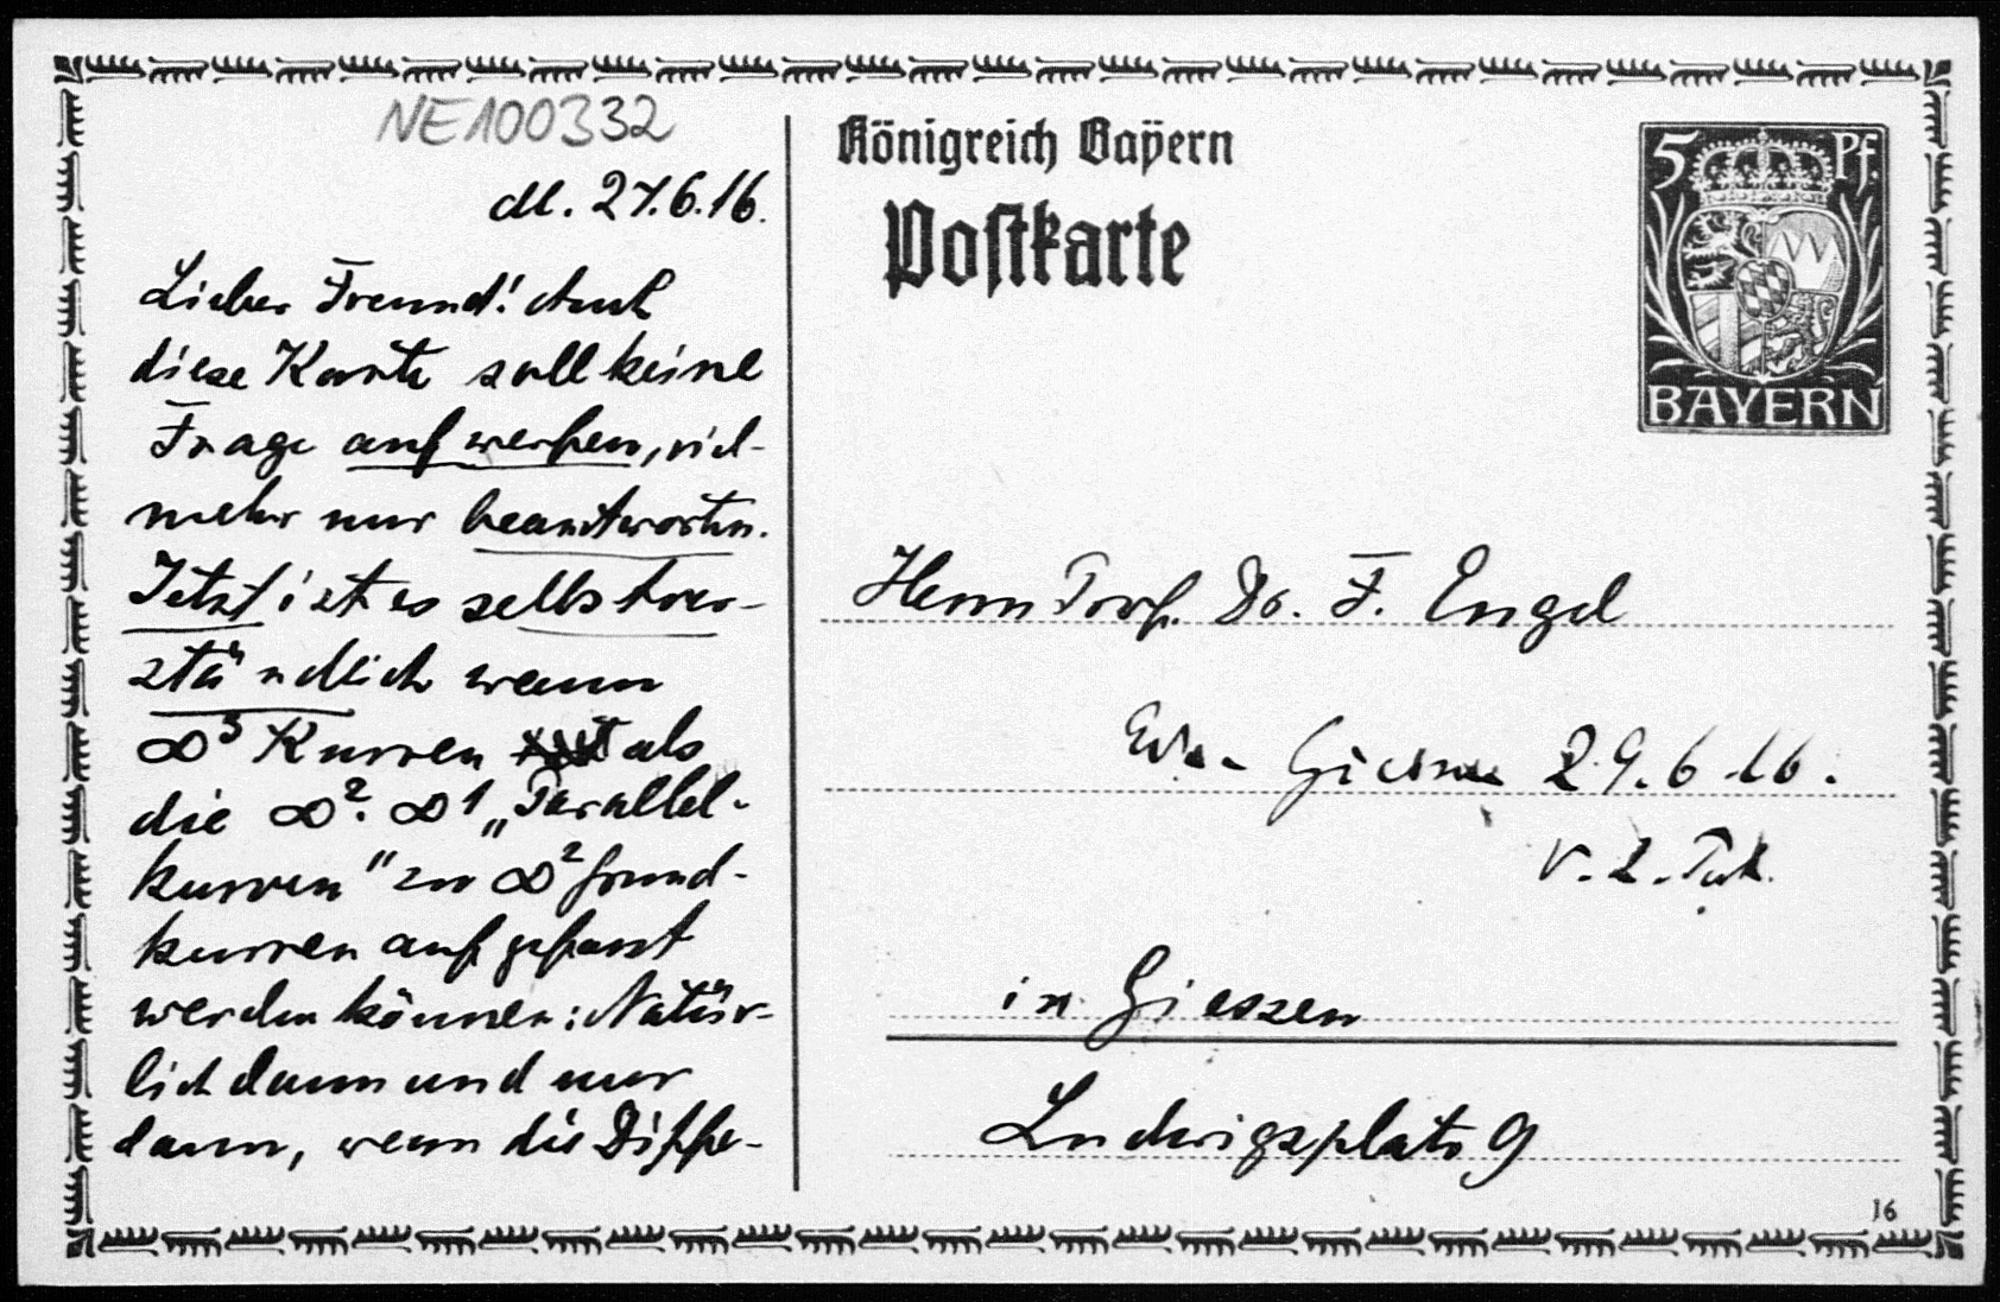 NE100332
M. 27.6.16.
Lieber Freund! Auch
diese Karte soll keine
Frage aufwerfen, viel-
mehr nur beantworten.
Jetzt ist es selbstver-
ständlich wann
∞³ Kurven als
die ∞². ∞¹ „Parallel-
kurven" zu ∞² Grund-
kurven aufgefasst
werden können: Natür-
lich dann und nur
dann, wenn die Diffe-
Königreich Bayern
Postkarte
5 Pf.
BAYERN
Herrn Prof. Dr. F. Engel
Giessen 29.6.16.
V. L.
in Giessen
Ludwigsplatz 9
16